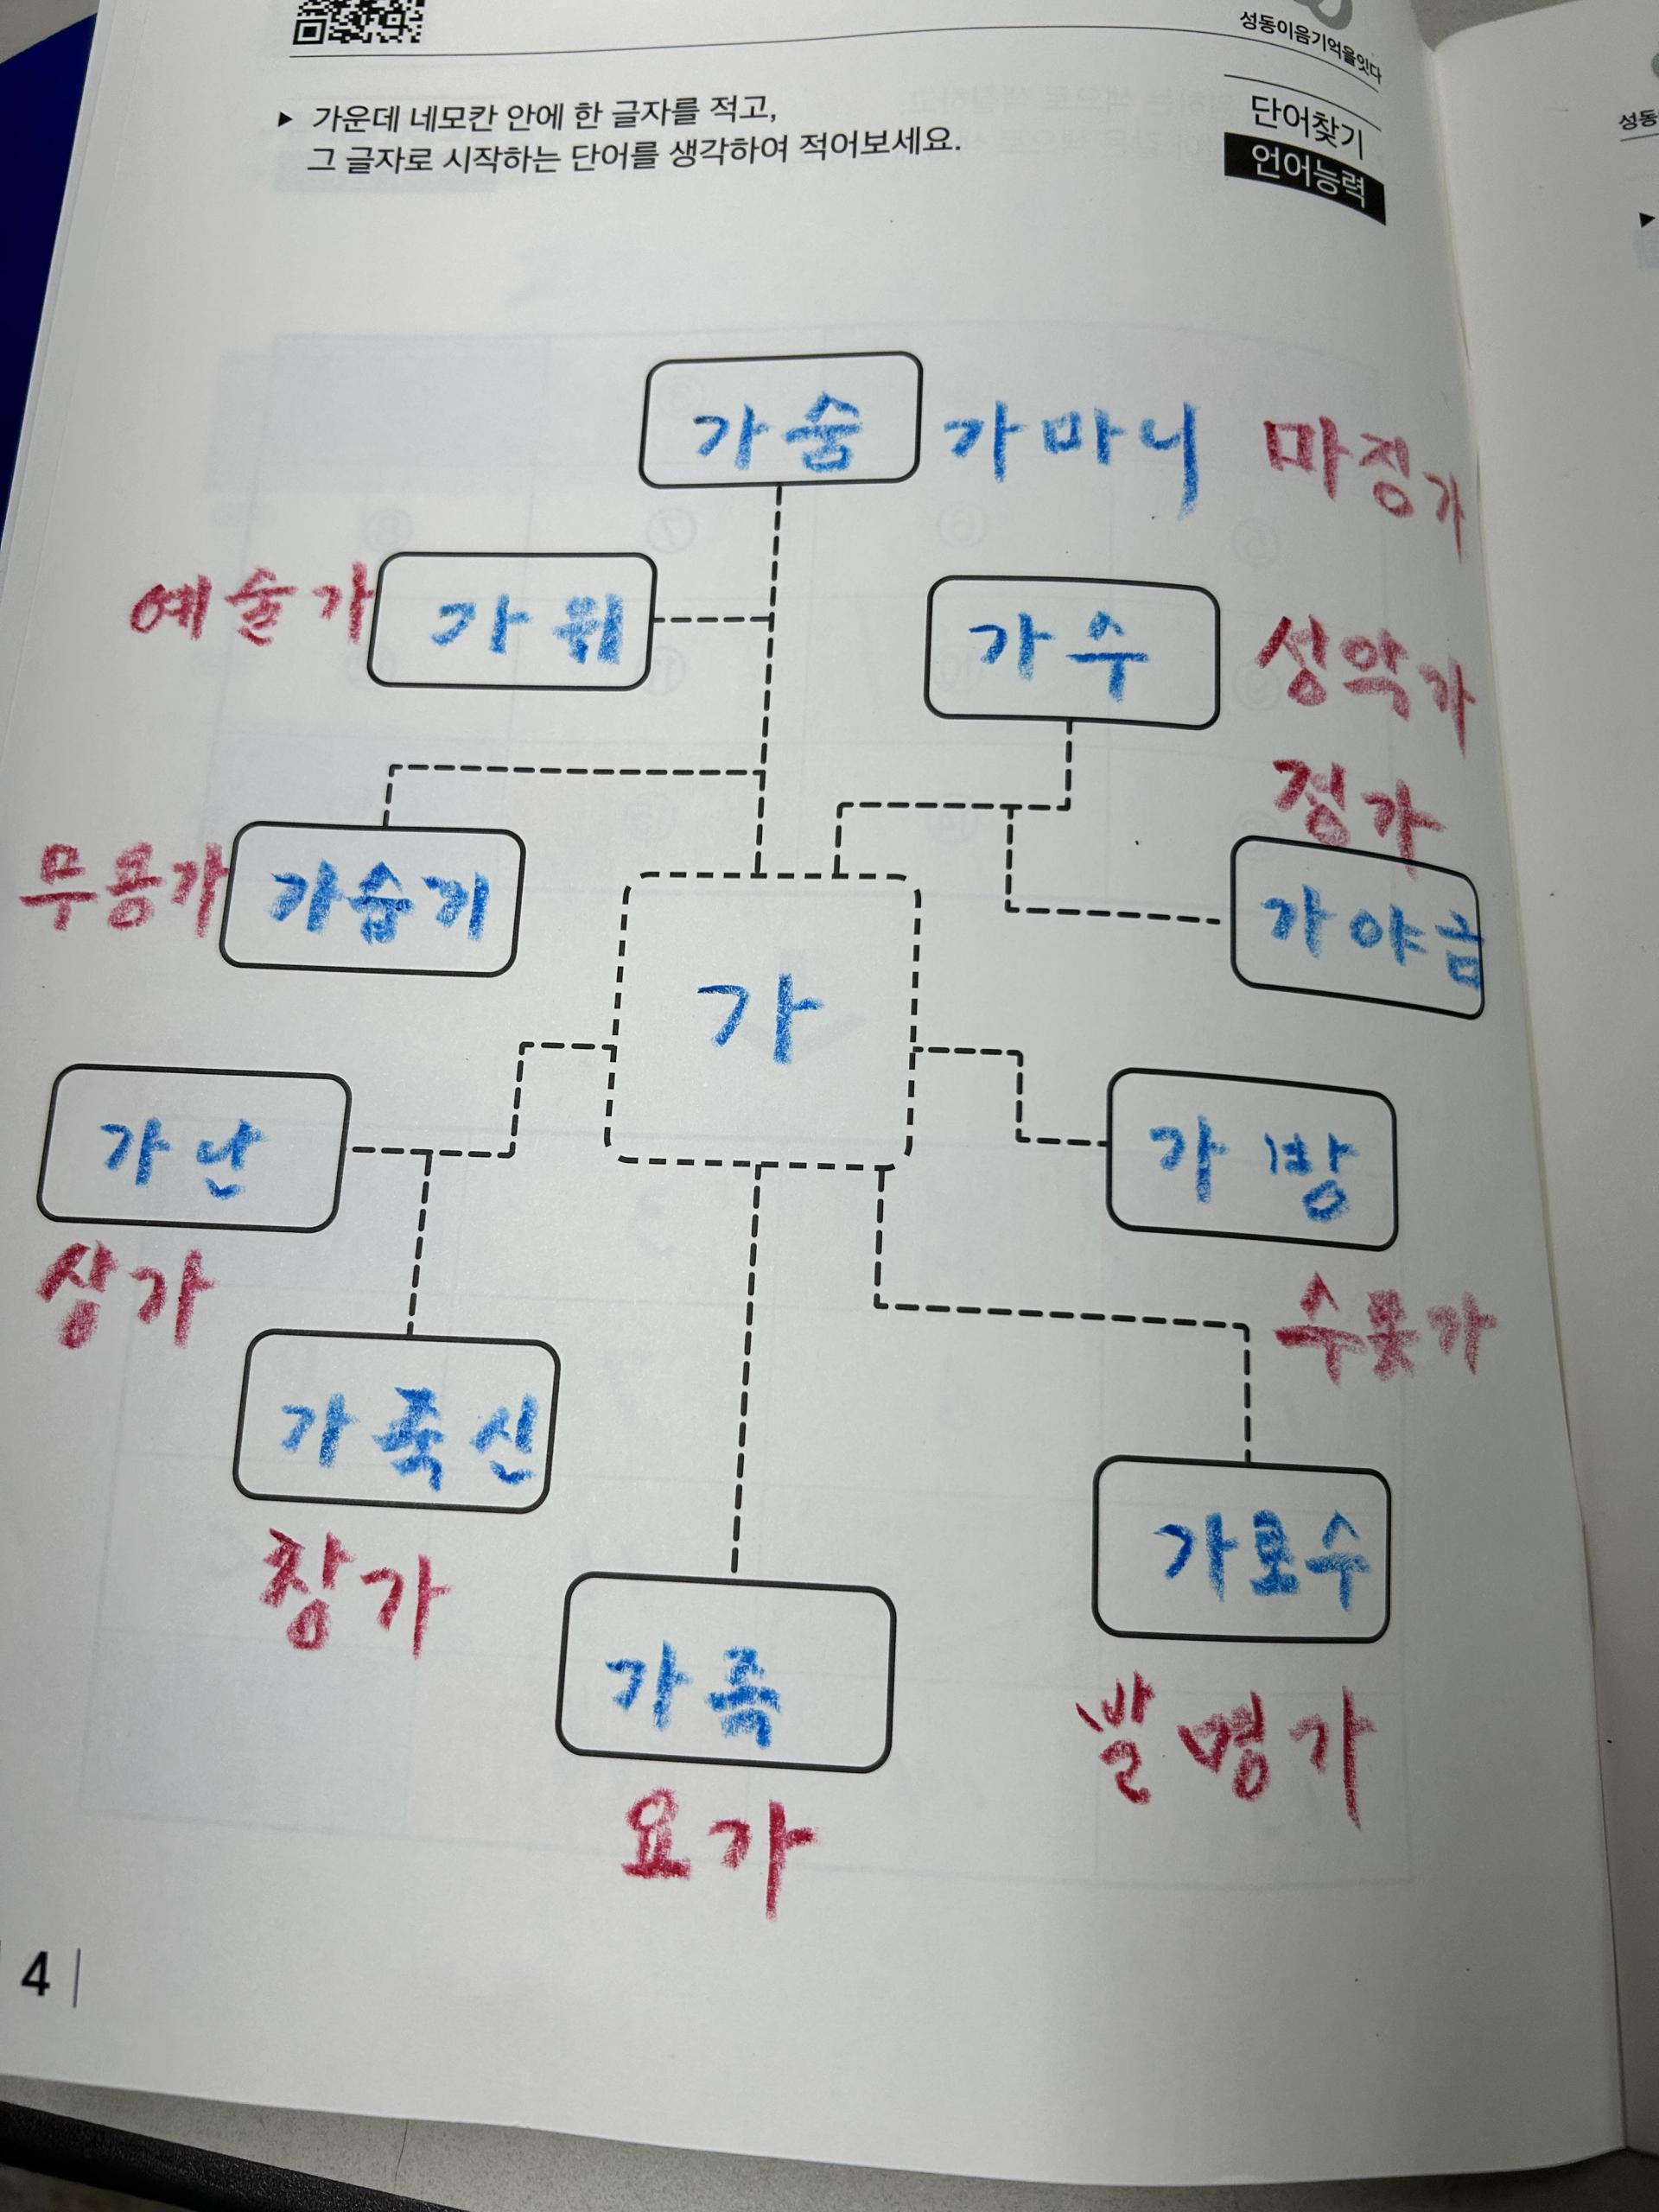 성동이음기억을잇다
▶ 가운데 네모칸 안에 한 글자를 적고,
그 글자로 시작하는 단어를 생각하여 적어보세요.
단어찾기
언어능력
가슴 가마니 마징가
예술가 가위
가수 성악가
정가
무용가 가습기
가야금
가
가난
가방
상가
수묵가
가죽신
가로수
창가
가족
발명가
요가
4
성동
▶